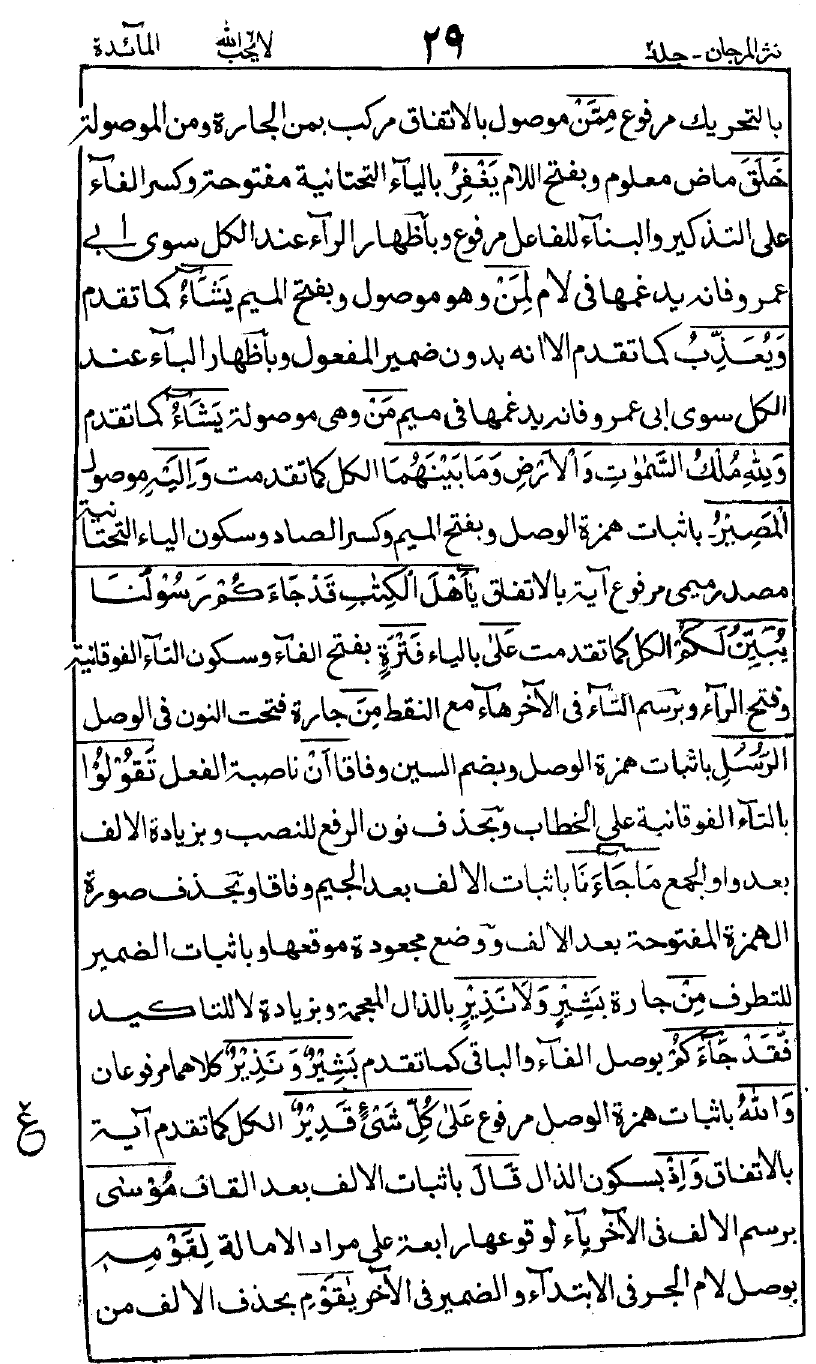 نثر المرجان - جلد٢ ٢٩ لا يحب الله المآئدة
بالتحريك مرفوع مِمَّنْ موصول بالاتفاق مركب بمن الجارة ومن الموصولة
خَلَقَ ماض معلوم وبفتح اللام يَغْفِرُ بالياء التحتانية مفتوحة وكسر الفآء
على التذكير والبنآء للفاعل مرفوع وبأظهار الرآء عند الكل سوى ابى
عمرو فانه يدغمها فى لام لِمَنْ وهو موصول وبفتح الميم يَشَآءُ كما تقدم
وَيُعَذِّبُ كما تقدم الا انه بدون ضمير المفعول وبأظهار البآء عند
الكل سوى ابى عمرو فانه يدغمها فى ميم مَنْ وهى موصولة يَشَآءُ كما تقدم
وَلِلّٰهِ مُلْكُ السَّمٰوٰتِ وَالْاَرْضِ وَمَا بَيْنَهُمَا الكل كما تقدمت وَاِلَيْهِ موصول
الْمَصِيْرُ باثبات همزة الوصل وبفتح الميم وكسر الصاد وسكون الياء التحتانية
مصدر ميمى مرفوع آية بالاتفاق يٰٓاَهْلَ الْكِتٰبِ قَدْ جَآءَكُمْ رَسُوْلُنَا
يُبَيِّنُ لَكُمْ الكل كما تقدمت عَلٰى بالياء فَتْرَةٍ بفتح الفآء وسكون التآء الفوقانية
وفتح الرآء وبرسم التآء فى الآخر هآء مع النقط مِنَ جارة فتحت النون فى الوصل
الرُّسُلِ باثبات همزة الوصل وبضم السين وفاقا اَنْ ناصبة الفعل تَقُوْلُوْا
بالتآء الفوقانية على الخطاب وبحذف نون الرفع للنصب وبزيادة الالف
بعد واو الجمع مَا جَآءَنَا باثبات الالف بعد الجيم وفاقا وبحذف صورة
الهمزة المفتوحة بعد الالف ووضع مجعودة موقعها وباثبات الضمير
للتطرف مِنْ جارة بَشِيْرٍ وَلَا نَذِيْرٍ بالذال المعجمة وبزيادة لا للتاكيد
فَقَدْ جَآءَكُمْ بوصل الفآء والباقى كما تقدم بَشِيْرٌ وَنَذِيْرٌ كلاهما مرفوعان
وَاللّٰهُ باثبات همزة الوصل مرفوع عَلٰى كُلِّ شَىْءٍ قَدِيْرٌ الكل كما تقدم آية
ع
بالاتفاق وَاِذْ بسكون الذال قَالَ باثبات الالف بعد القاف مُوْسٰى
برسم الالف فى الآخر يآء لوقوعها رابعة على مراد الامالة لِقَوْمِهٖ
بوصل لام الجر فى الابتدآء والضمير فى الآخر يٰقَوْمِ بحذف الالف من